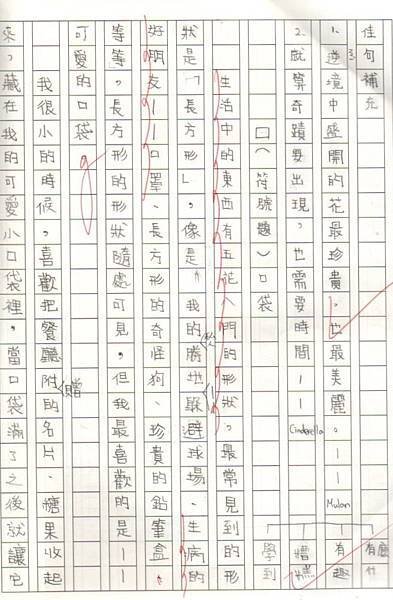 佳句補充
1.逆境中盛開的花最珍貴。也最美麗。——Mulan
2.就算奇蹟要出現,也需要時間——Cinderella
口(符號題)口袋
生活中的東西有五花八門的形狀。最常見到的形
狀是「長方形」,像是:我的勝地躲避球場、生病的
好朋友——口罩、長方形的奇怪狗、珍貴的鉛筆盒、
等等,長方形的形狀隨處可見,但我最喜歡的是——
可愛的口袋
我很小的時候,喜歡把餐廳附贈的名片、糖果收起
來,藏在我的可愛小口袋裡,當口袋滿了之後就讓它
有趣
糟糕
學到